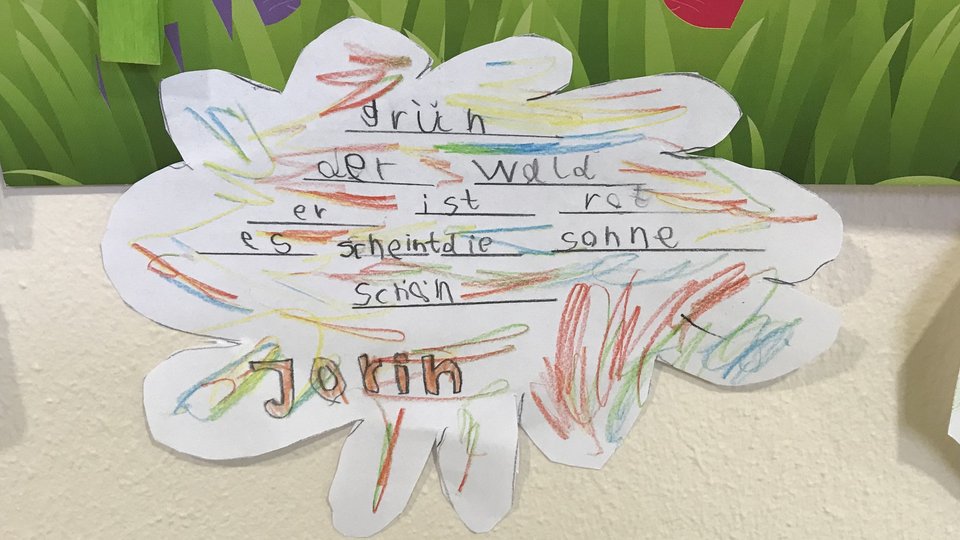 grün
der Wald
er ist rot
es scheintdie sonne
Schön
Jorin